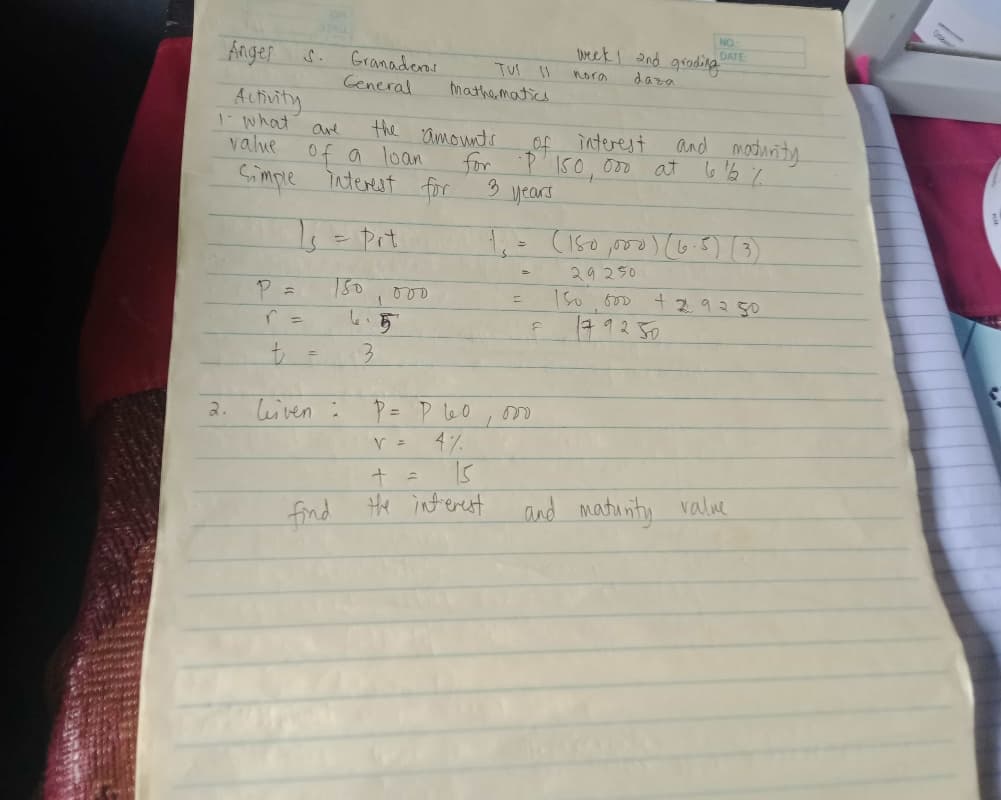 NO:
DATE
Angel S. Granaderos TVI 11 week 1 2nd grading
nora daza
General Mathematics
Activity
1- What are the amounts of interest and maturity
value of a loan for P 150,000 at 6 1/2 %
Simple interest for 3 years
Is = Prt
Is = (150,000) (6.5) (3)
= 29250
P = 150,000
= 150,000 + 29250
r = 6.5
= 179250
t = 3
2. Given : P = P 60,000
r = 4%
t = 15
find the interest and maturity value